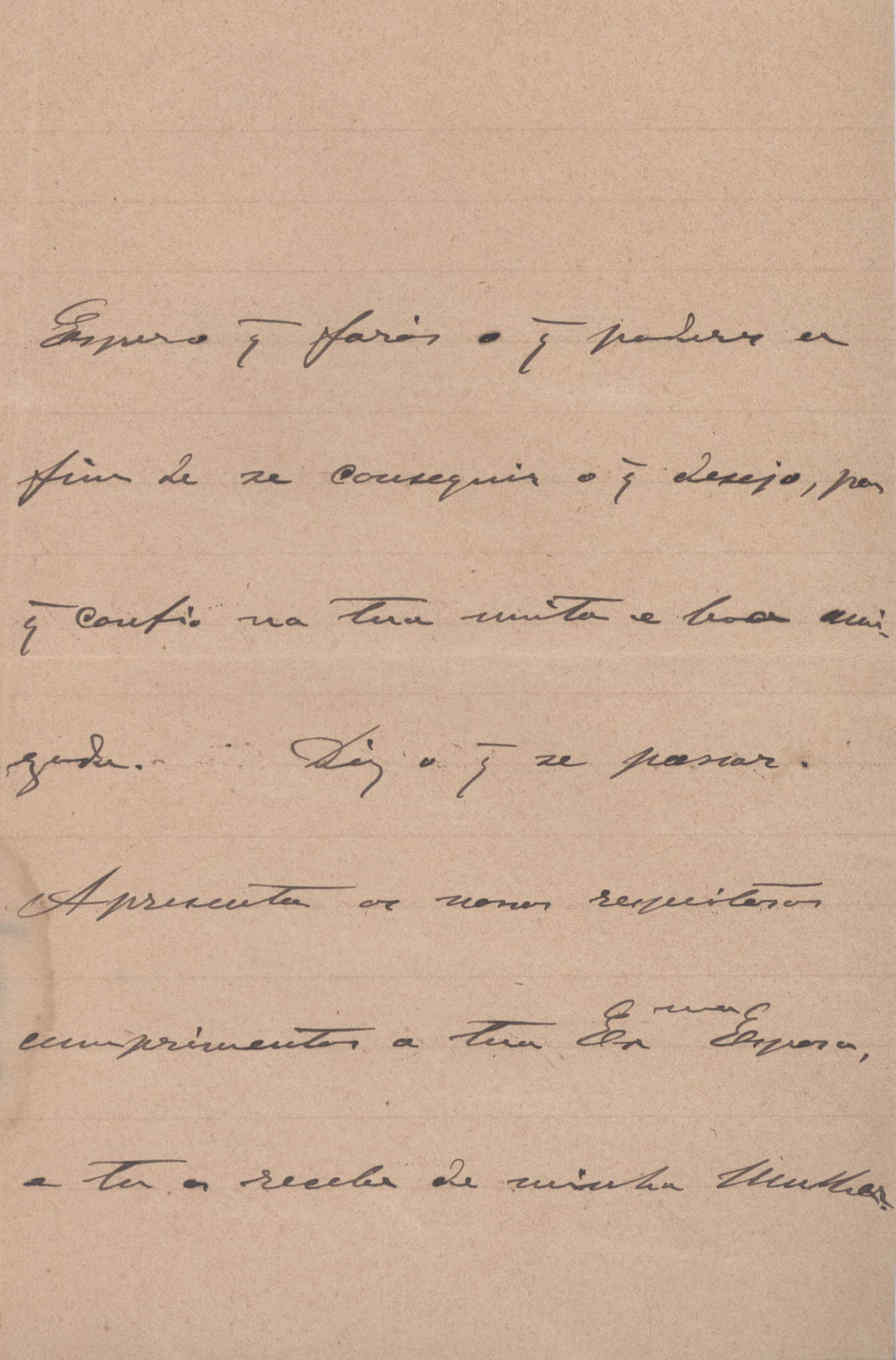 Espero q̄ farás o q̄ poderes a
fim de se conseguir o q̄ desejo, por
q̄ confio na tua muita e boa ami-
zade. Diz o q̄ se passar.
Apresenta os nossos respeitosos
cumprimentos a tua Exma Esposa,
e tu os recebe de minha Mulher.